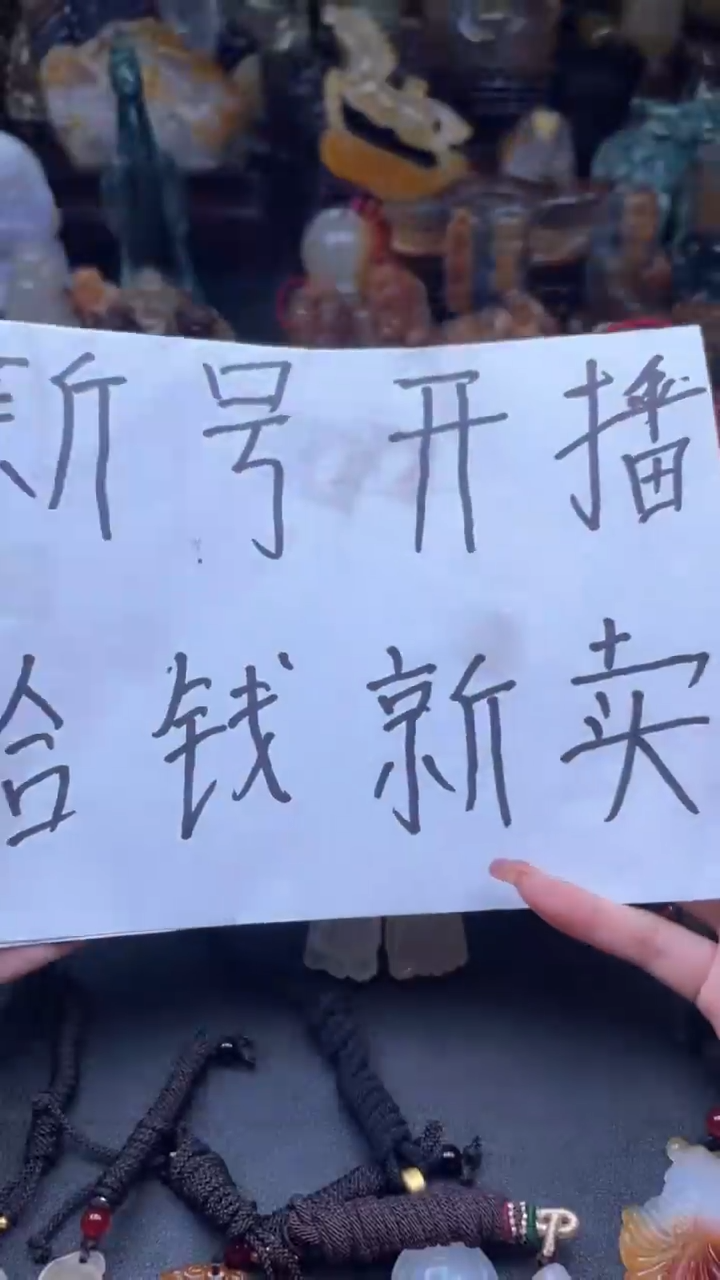 新号开播
给钱就卖